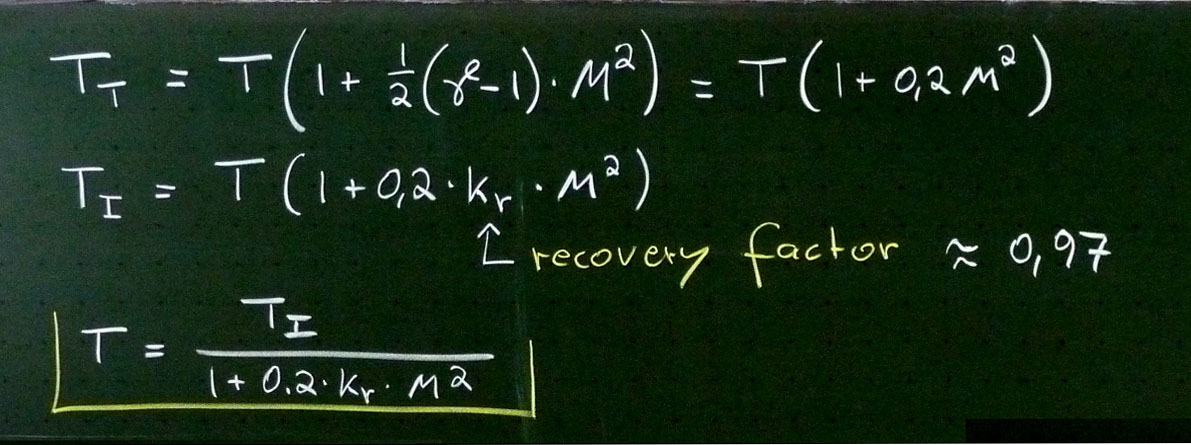 T_T = T(1 + 1/2(γ-1)·M²) = T(1 + 0,2 M²)
T_I = T(1 + 0,2·k_r·M²)
↑ recovery factor ≈ 0,97
T = T_I / (1 + 0.2·k_r·M²)